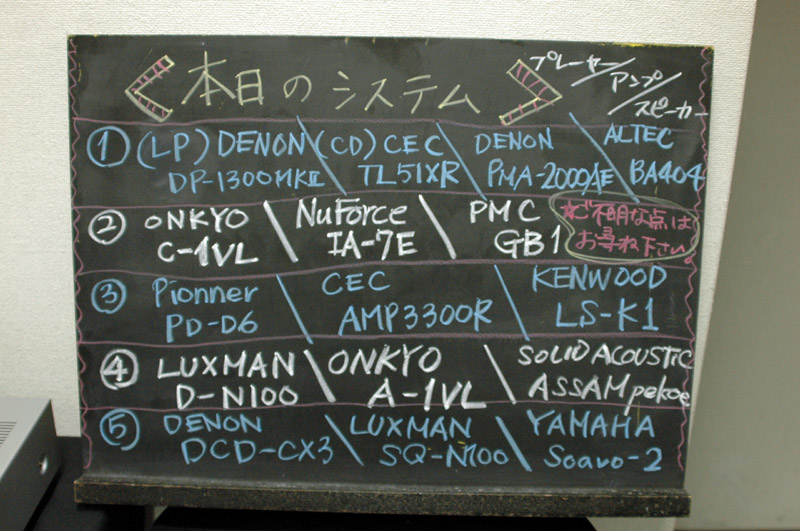 本日のシステム
プレーヤー/
アンプ/
スピーカー
① (LP) DENON / (CD) CEC / DENON \ ALTEC
DP-1300MKII TL51XR PMA-2000AE BA404
② ONKYO \ NuForce \ PMC
C-1VL IA-7E GB1
※ご不明な点は
お尋ね下さい。
③ Pionner \ CEC \ KENWOOD
PD-D6 AMP3300R LS-K1
④ LUXMAN \ ONKYO \ SOLID ACOUSTIC
D-N100 A-1VL ASSAM pekoe
⑤ DENON \ LUXMAN \ YAMAHA
DCD-CX3 SQ-N100 Soavo-2